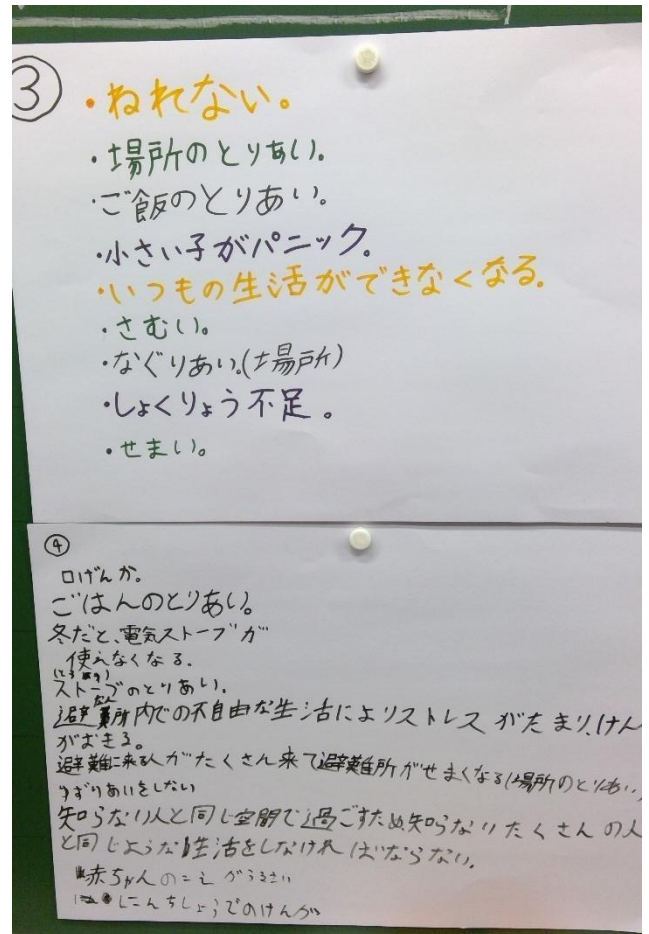 ③
・ねれない。
・場所のとりあい。
・ご飯のとりあい。
・小さい子がパニック。
・いつもの生活ができなくなる。
・さむい。
・なぐりあい。(場所)
・しょくりょう不足。
・せまい。
④
口げんか。
ごはんのとりあい。
冬だと、電気ストーブが
使えなくなる。
ストーブのとりあい。
避難所内での不自由な生活によりストレスがたまり、けん
がおきる。
避難に来る人がたくさん来て避難所がせまくなる(場所のとりあい)
ゆずりあいをしない
知らない人と同じ空間で過ごすため知らないたくさんの人
と同じような生活をしなければならない。
赤ちゃんのこえがうるさい
にんちしょうでのけんか